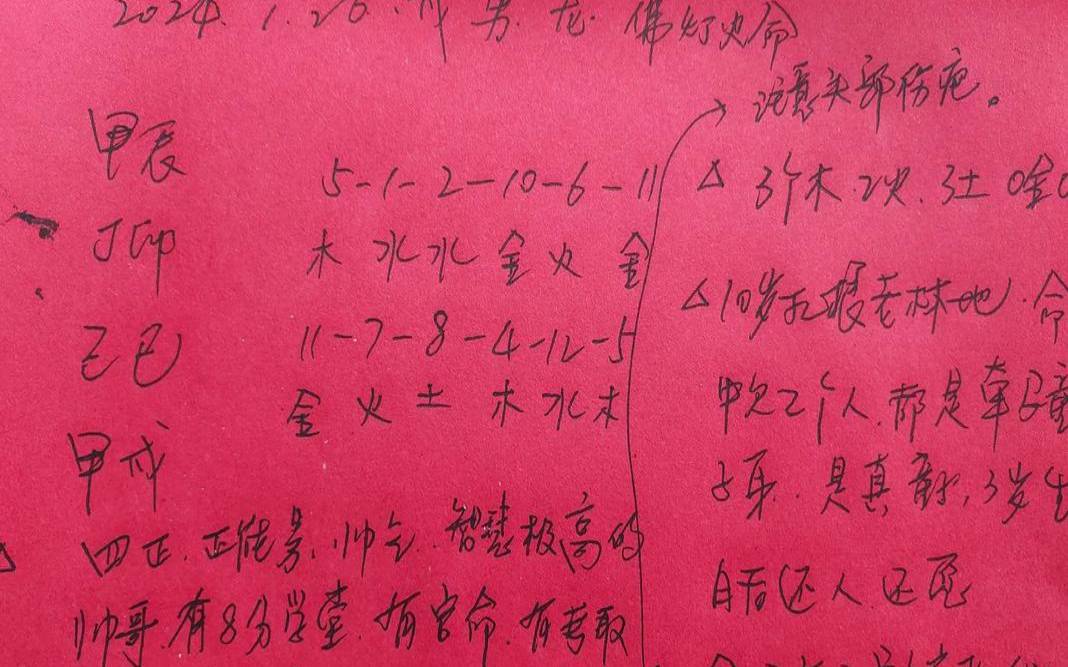 2024.1.26.戌 男.龙.佛灯火命
注意头部伤疤。
甲辰
丁卯
己巳
甲戌
5-1-2-10-6-11
木水水金火金
11-7-8-4-12-5
金火土木水木
四正.正能量.帅气.智慧极高的
帅哥.有8分学堂.有官命.有考取
△ 3个木.2火.3土 0金0
△10岁 老林地.命
中欠2个人.都是牵马童
子来.是真童,3岁
后还人还愿